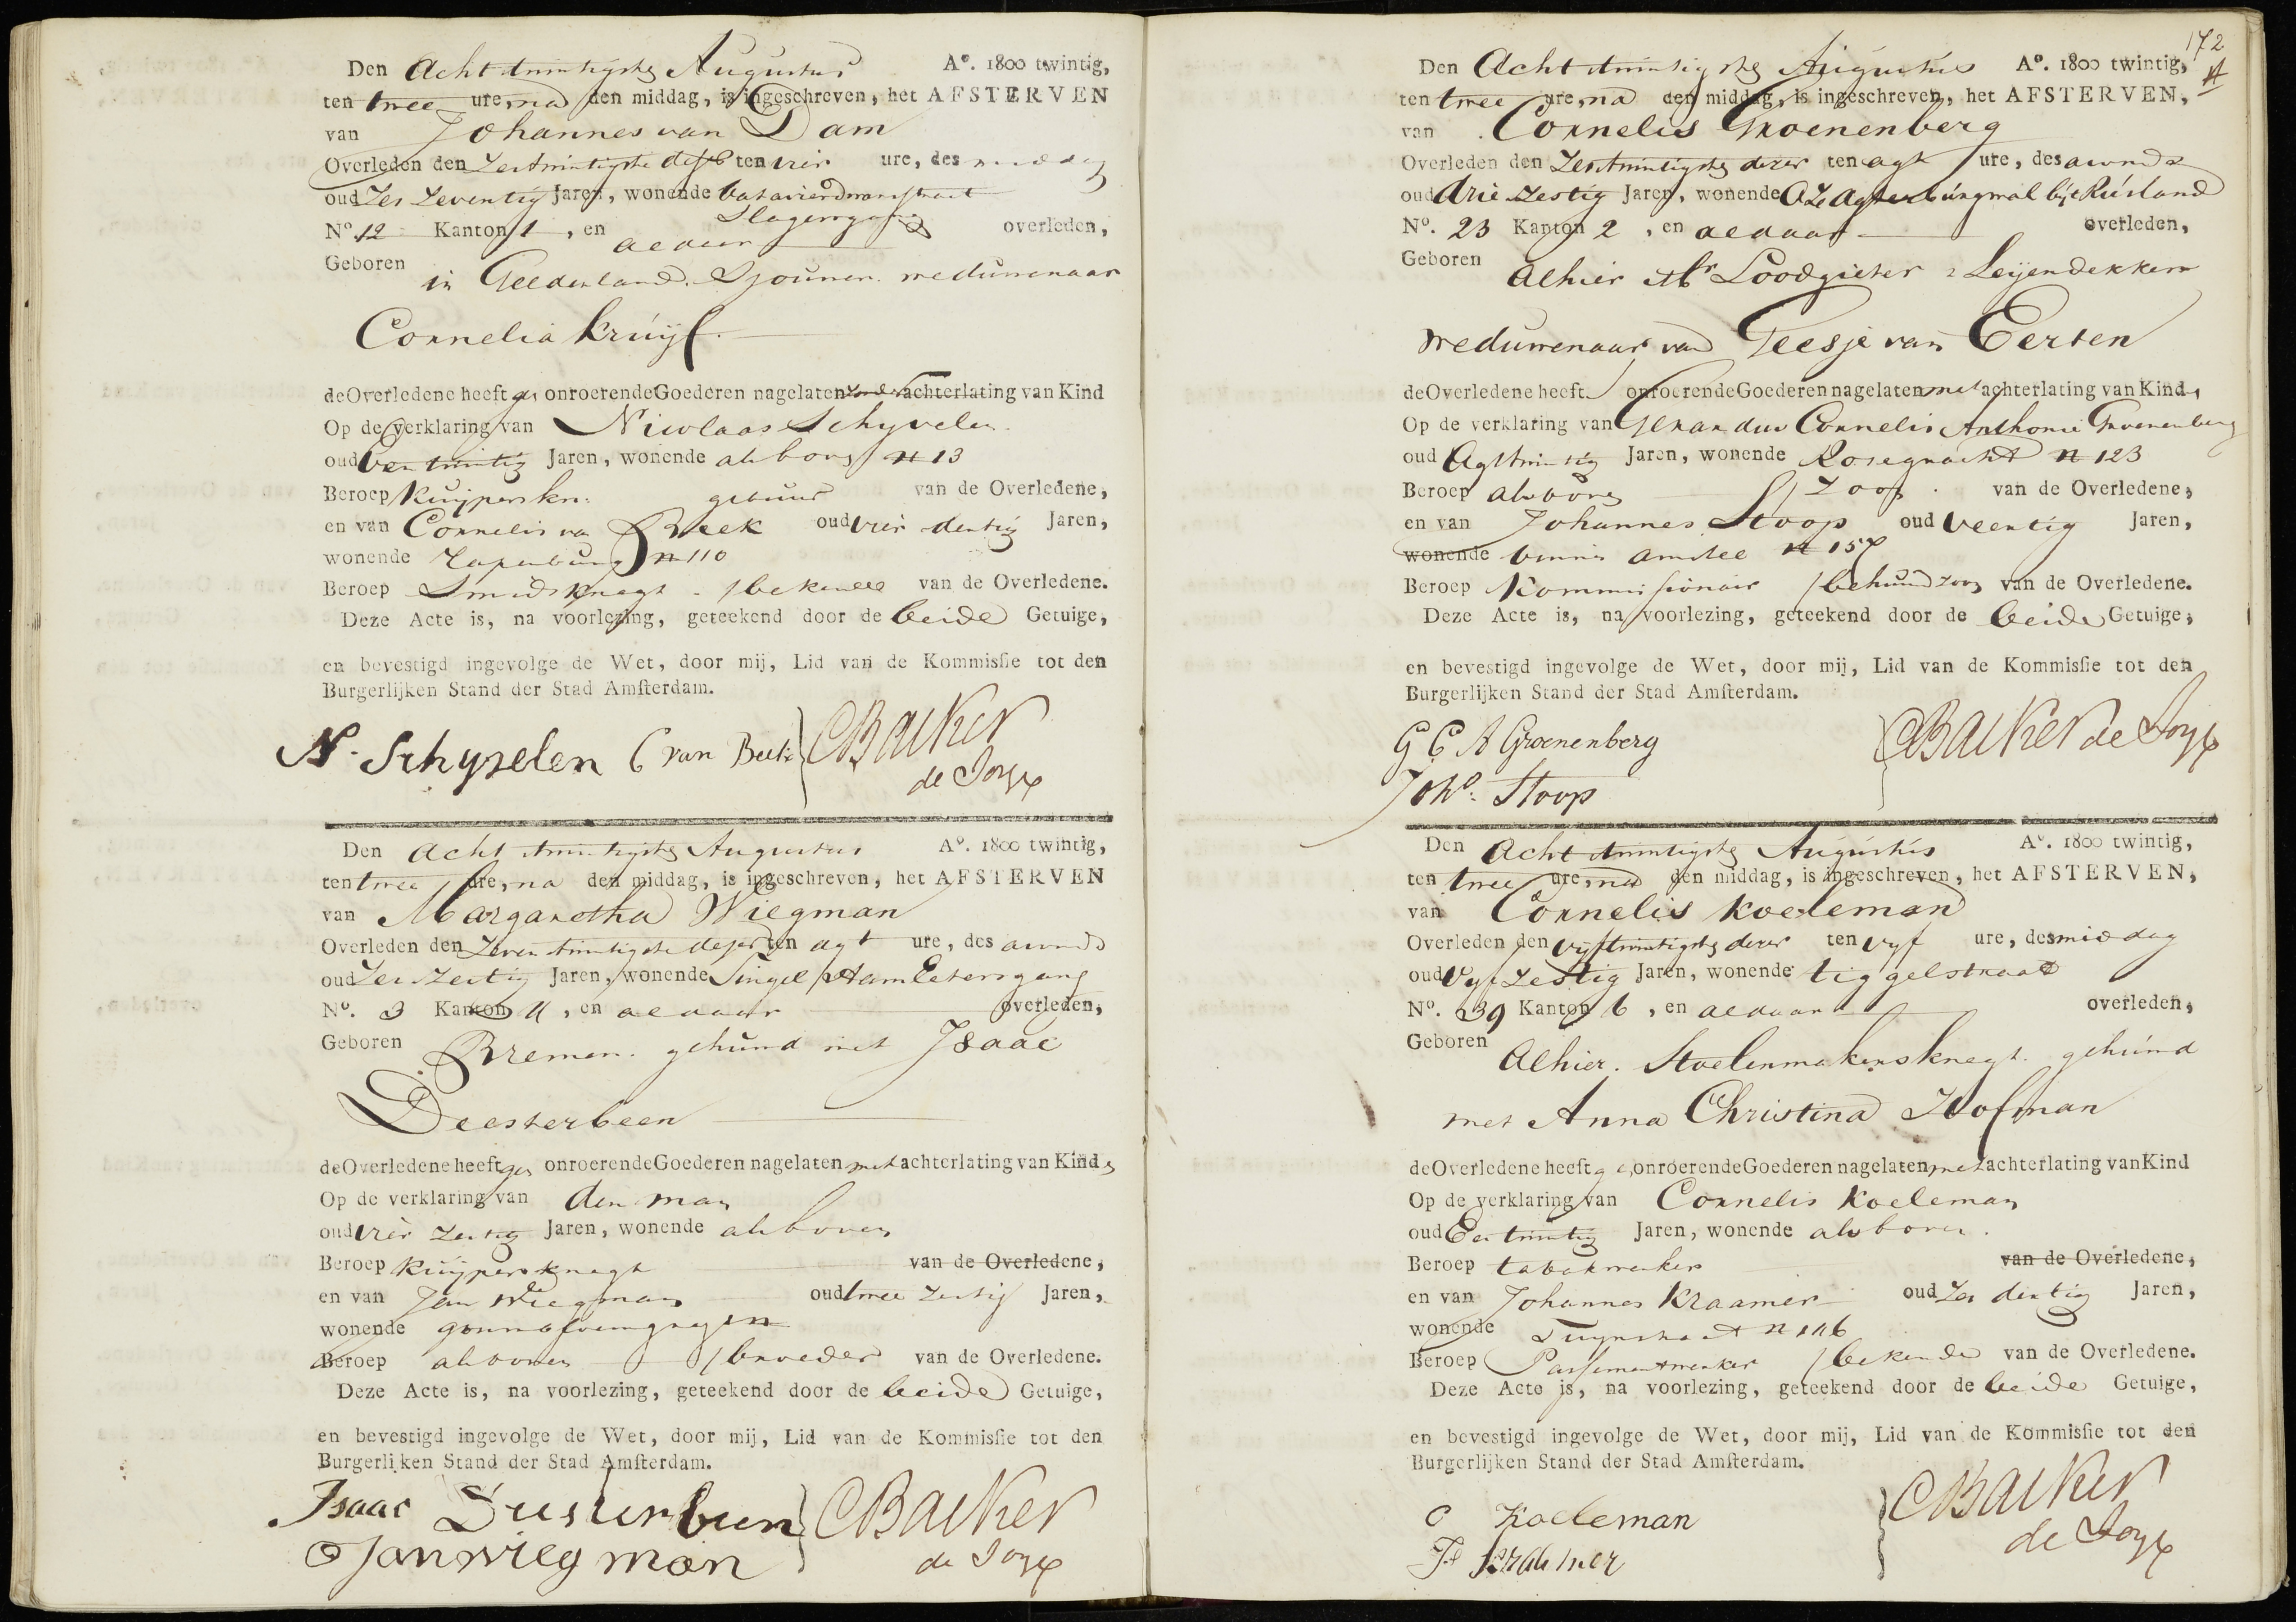 Den Acht twintigste Augustus Aº. 1800 twintig,
ten twee ure na den middag, is ingeschreven, het AFSTERVEN
van Johannes van Dam
Overleden den Zestwintigste deser ten vier ure, des middag
oud Zes Zeventig Jaren, wonende
Nº. 12 Kanton 1, en Slagersgang aldaar overleden,
Geboren in Gelderland. Sjouwer. weduwenaar
Cornelia Kruyf.
de Overledene heeft gn onroerende Goederen nagelaten zonder achterlating van Kind
Op de verklaring van Nicolaas Schyvelen
oud Een twintig Jaren, wonende als boven N 13
Beroep Kuyperskn: gebuur van de Overledene,
en van Cornelis van Beek oud vier dertig Jaren,
wonende Rapenburg N 110
Beroep Smidsknegt bekende van de Overledene.
Deze Acte is, na voorlezing, geteekend door de beide Getuige,
en bevestigd ingevolge de Wet, door mij, Lid van de Kommisſie tot den
Burgerlijken Stand der Stad Amſterdam.
N. Schyvelen C van Beek CBacker
de Jonge
Den Acht twintigste Augustus Aº. 1800 twintig,
ten twee ure, na den middag, is ingeschreven, het AFSTERVEN
van Margaretha Wiegman
Overleden den Zeven twintigste deser ten agt ure, des avonds
oud Zes Zestig Jaren, wonende Singel Hameetersgang
Nº. 3 Kanton 4, en aldaar overleden,
Geboren Bremen. gehuwd met Isaac
Deesterbeen
de Overledene heeft gen onroerende Goederen nagelaten met achterlating van Kind
Op de verklaring van den man
oud vier Zestig Jaren, wonende als boven
Beroep Kuypersknegt van de Overledene,
en van Jan Wiegman oud twee Zestig Jaren,
wonende
Beroep als boven broeder van de Overledene.
Deze Acte is, na voorlezing, geteekend door de beide Getuige,
en bevestigd ingevolge de Wet, door mij, Lid van de Kommisſie tot den
Burgerlijken Stand der Stad Amſterdam.
Isaac Duesterbeen CBacker
Jan wiegman de Jonge
172
Den Acht twintigste Augustus Aº. 1800 twintig,
ten twee ure, na den middag, is ingeschreven, het AFSTERVEN,
van Cornelis Groenenberg
Overleden den Zestwintigste dezer ten agt ure, des avonds
oud drie Zestig Jaren, wonende OZ Agterburgwal bij Rusland
Nº. 23 Kanton 2, en aldaar overleden,
Geboren Alhier Mr Loodgieter & Leyendekker
weduwenaar van Geesje van Eerten
de Overledene heeft onroerende Goederen nagelaten met achterlating van Kind,
Op de verklaring van Gerardus Cornelis Anthonie Groenenberg
oud Agttwintig Jaren, wonende Rosegracht N 123
Beroep als boven Zoon van de Overledene,
en van Johannes Stoop oud Veertig Jaren,
wonende binnen Amstel N 157
Beroep Kommissionair behuwdzoon van de Overledene.
Deze Acte is, na voorlezing, geteekend door de beide Getuige,
en bevestigd ingevolge de Wet, door mij, Lid van de Kommisſie tot den
Burgerlijken Stand der Stad Amſterdam.
G C A Groenenberg CBacker de Jonge
Johs. Stoop
Den Acht twintigste Augustus Aº. 1800 twintig,
ten twee ure, na den middag, is ingeschreven, het AFSTERVEN,
van Cornelis Koeleman
Overleden den vyftwintigste dezer ten vyf ure, des middag
oud Vyf Zestig Jaren, wonende tiggelstraat
Nº. 39 Kanton 6, en aldaar overleden,
Geboren Alhier. Stoelenmakersknegt. gehuwd
met Anna Christina Hofman
de Overledene heeft ge onroerende Goederen nagelaten met achterlating van Kind
Op de verklaring van Cornelis Koeleman
oud Een twintig Jaren, wonende als boven.
Beroep tabakwerker van de Overledene,
en van Johannes Kraamer oud Zes dertig Jaren,
wonende Tuynstraat N 116
Beroep Passementwerker bekende van de Overledene.
Deze Acte is, na voorlezing, geteekend door de beide Getuige,
en bevestigd ingevolge de Wet, door mij, Lid van de Kommisſie tot den
Burgerlijken Stand der Stad Amſterdam.
C Koeleman CBacker
J Kraamer de Jonge